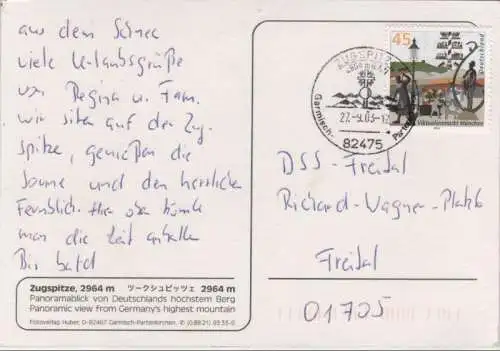 aus dem Schnee
viele Urlaubsgrüße
von Regina u. Fam.
wir sitzen auf der Zug-
spitze, genießen die
Sonne und den herrlichen
Fernblick. Hier oben könnte
man die Zeit anhalten
Bis bald
Zugspitze, 2964 m ツークシュピッツェ 2964 m
Panoramablick von Deutschlands höchstem Berg
Panoramic view from Germany's highest mountain
Fotoverlag Huber, D-82467 Garmisch-Partenkirchen, ✆
45
Deutschland
Viktualienmarkt München
ZUGSPITZE
2964 m
Garmisch-
27.-9.03-12
82475
DSS-Freital
Richard-Wagner-Platz 6
Freital
01705